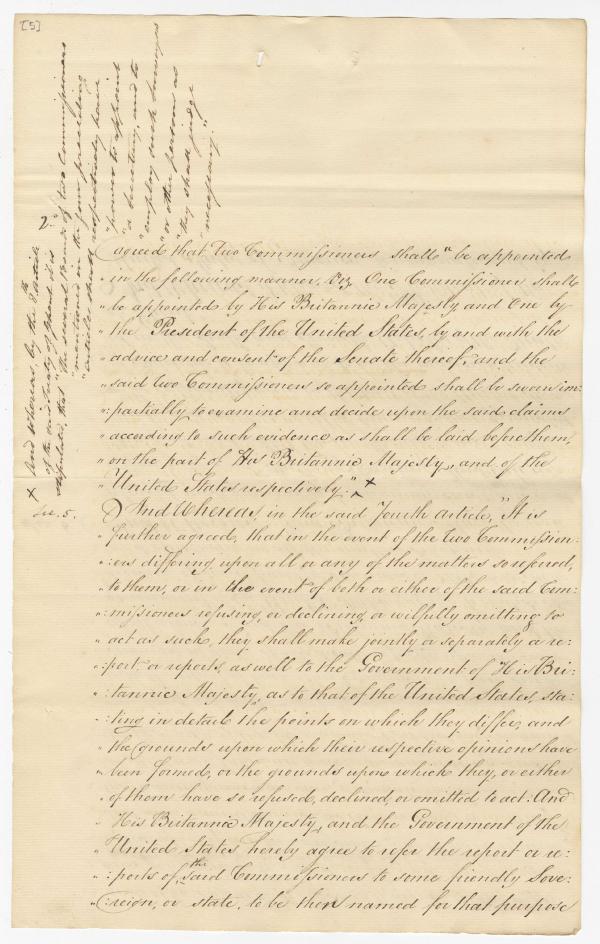 [5]
agreed that Two Commissioners shall" be appointed
" in the following manner, Viz. One Commissioner shall
" be appointed by His Britannic Majesty, and One by
" the President of the United States, by and with the
" advice and consent of the Senate thereof, and the
" said two Commissioners so appointed shall be sworn im:
": partially to examine and decide upon the said claims
" according to such evidence as shall be laid before them,
" on the part of His Britannic Majesty, and of the
" United States respectively." x
And Whereas in the said Fourth article, "It is
" further agreed, that in the event of the two Commission:
": ers differing upon all or any of the matters so referred,
" to them, or in the event of both or either of the said Com:
": missioners refusing, or declining, or wilfully omitting to
" act as such, they shall make jointly or separately a re:
": port or reports, as well to the Government of His Bri:
": tannic Majesty, as to that of the United States, sta:
": ting in detail the points on which they differ, and
" the grounds upon which their respective opinions have
" been formed, or the grounds upon which they, or either
" of them have so refused, declined, or omitted to act: And
" His Britannic Majesty, and the Government of the
" United States hereby agree to refer the report or re:
": ports of the said Commissioners to some friendly Sove:
": reign, or state, to be then named for that purpose
x And whereas, by the 8th Article
of the said treaty of Ghent it is
stipulated, that "the several Boards of two Commissioners
"mentioned in the four preceding
"articles shall respectively have
"power to appoint
"a Secretary, and to
"employ such Surveyors
"or other persons as
"they shall judge
"necessary."
2.